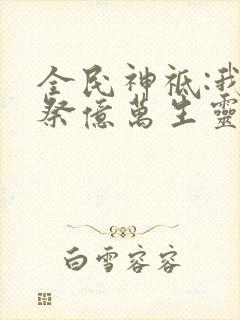 全民神祇:我
祭億萬生靈
白雪容容